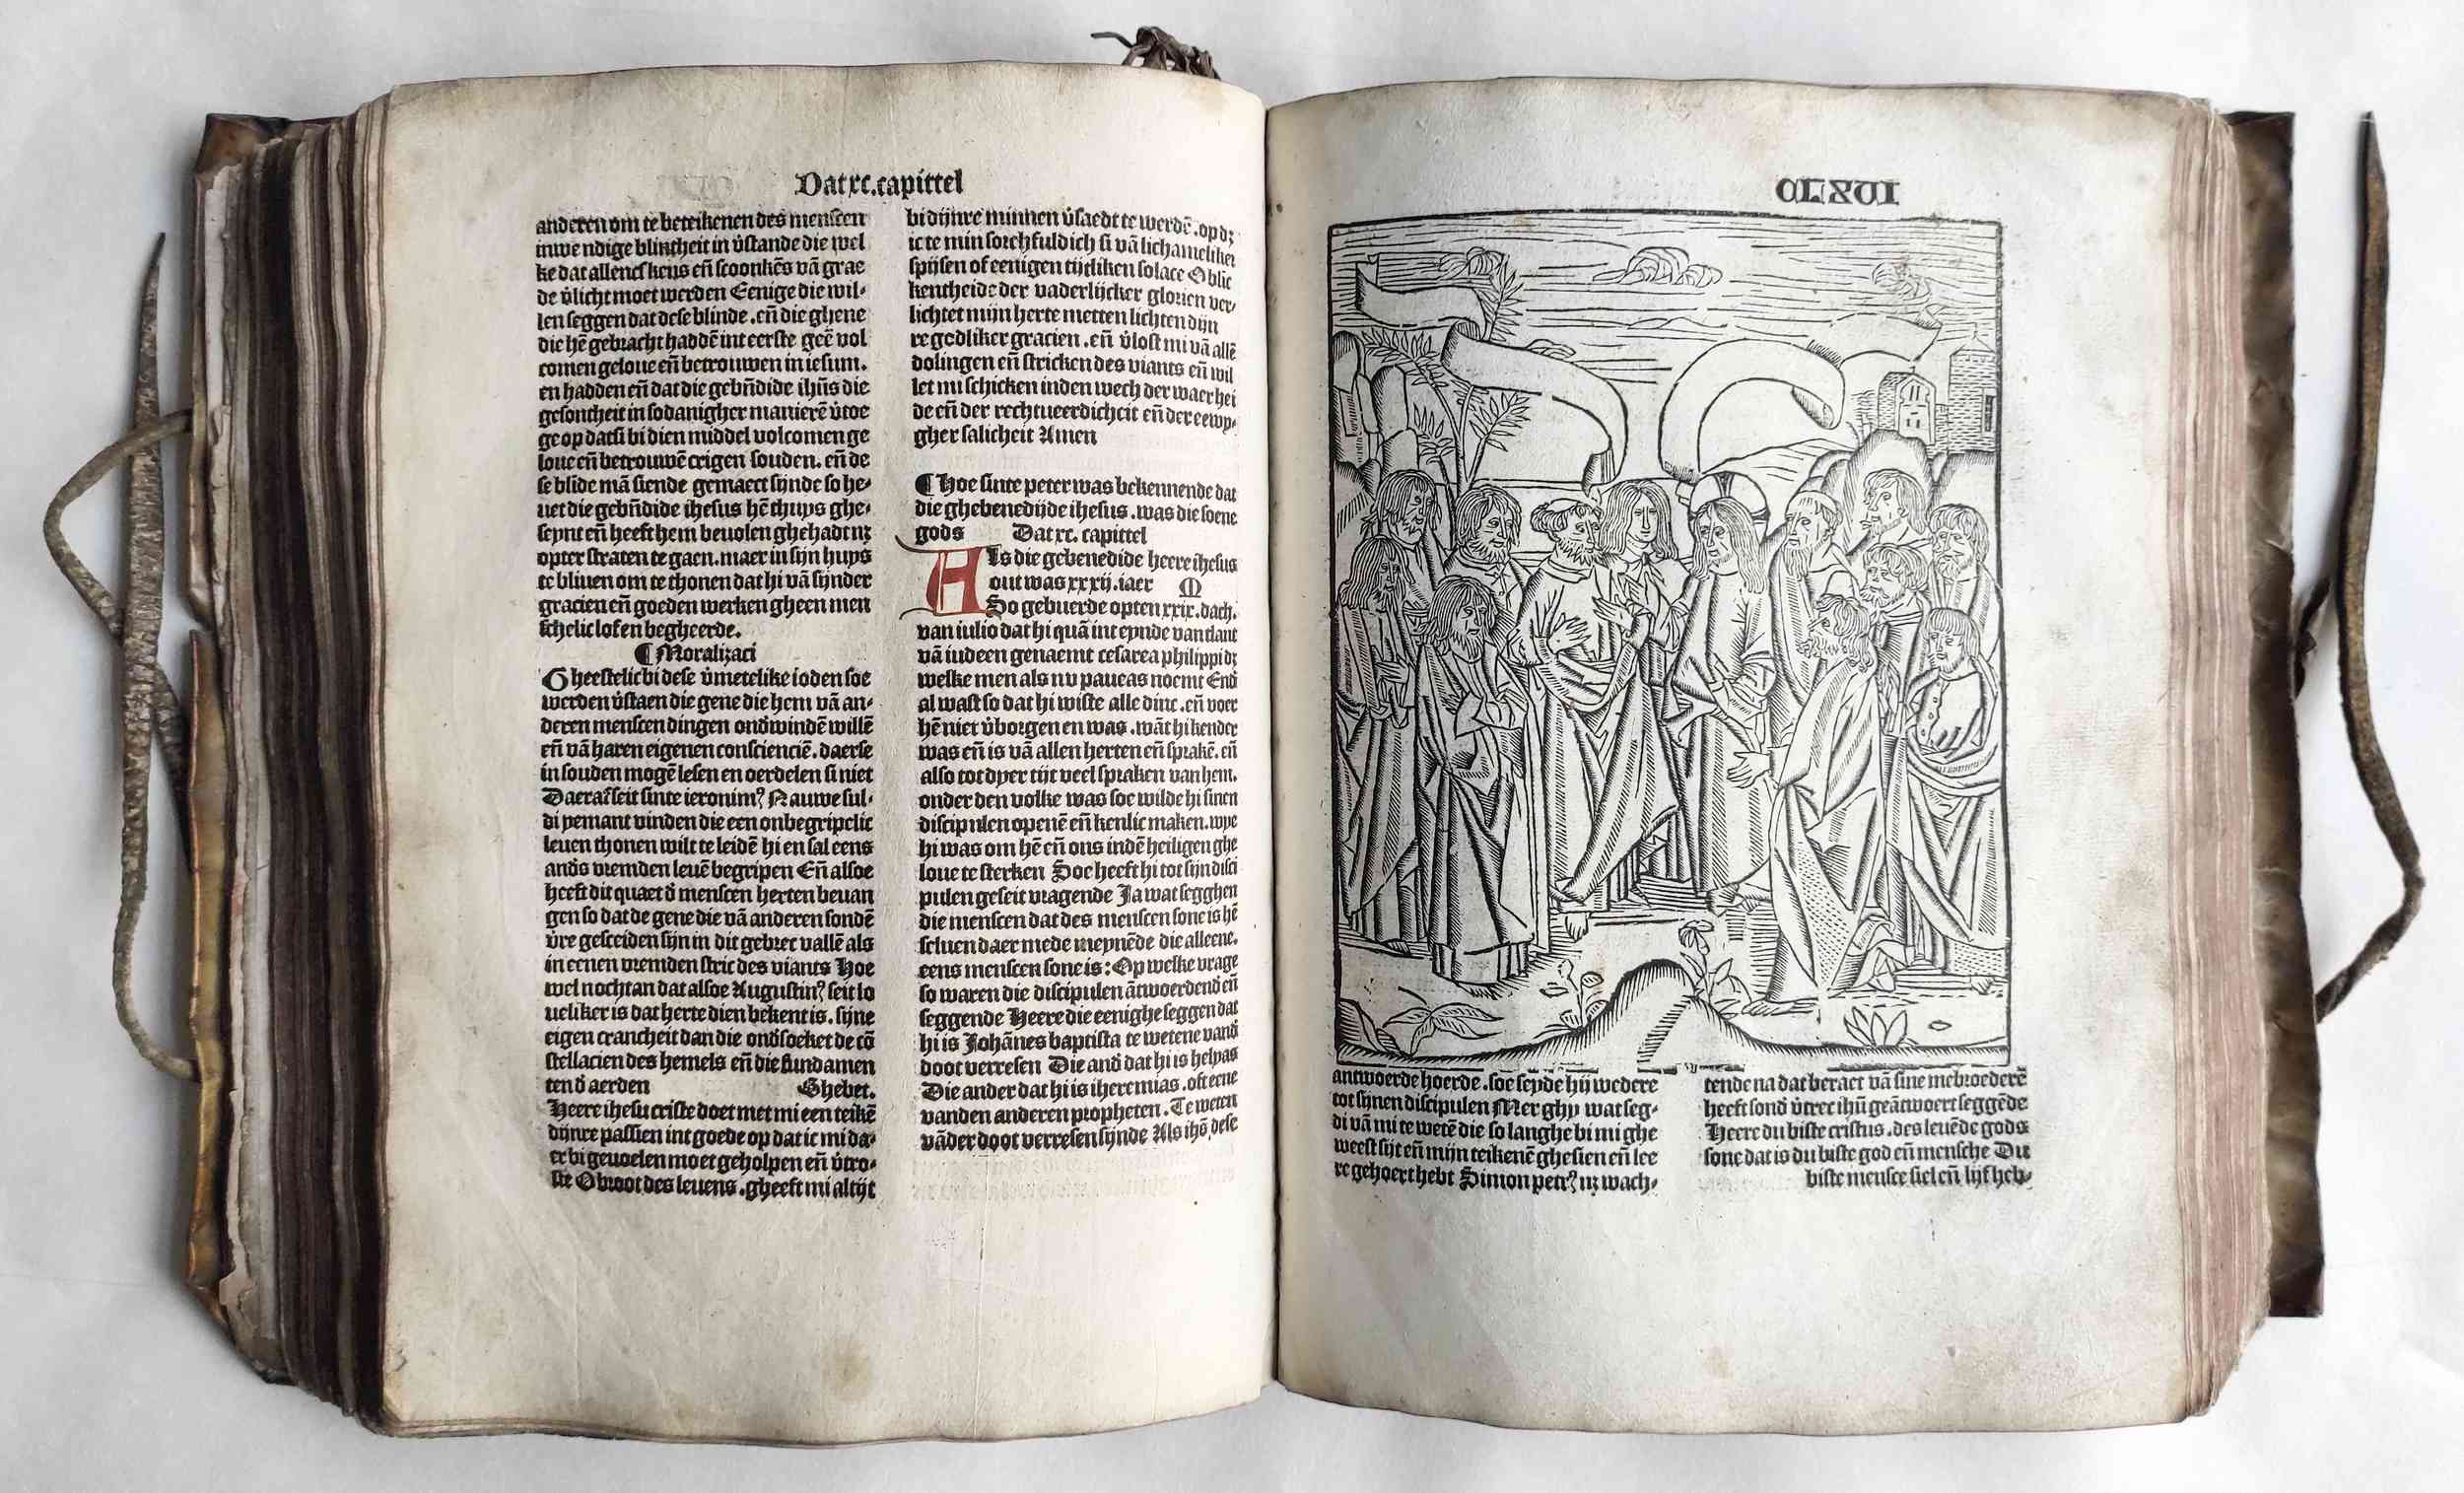 Dat xc. capittel
anderen om te beteikenen des menscen
inwe ndige blintheit in v̄stande die wel
ke dat allencskens en̄ scoonkēs vā grae
de v̄licht moet werden Eenige die wil-
len seggen dat dese blinde . en̄ die ghene
die hē gebracht haddē int eerste geē vol
comen geloue en̄ betrouwen in iesum.
en hadden en̄ dat die gebn̄dide ihūs die
gesontheit in sodanigher manierē v̄toe
ge op dat si bi dien middel volcomen ge
loue en̄ betrouwē crigen souden. en̄ de
se blīde mā siende gemaect sijnde so he-
uet die gebn̄dide ihesus hē thuys ghe-
seynt en̄ heeft hem beuolen ghehadt nꝫ
opter straten te gaen. maer in sijn huys
te bliuen om te thonen dat hi vā sijnder
gracien en̄ goeden werken gheen men
schelic lof en begheerde.
¶ Moralizaci
Gheestelic bi dese v̄metelike ioden soe
werden v̄staen die gene die hem vā an-
deren menscen dingen ond̄windē willē
en̄ vā haren eigenen consciencīe. daer se
in souden mogē lesen en oerdelen si niet
Daeraf seit sinte ieronimꝰ Nauwe sul-
di yemant vinden die een onbegripelic
leuen thonen wilt te leidē hi en sal eens
and̄s vremden leuē begripen En̄ alsoe
heeft dit quaet d̄ menscen herten beuan
gen so dat de gene die vā anderen sondē
v̄re gesceiden sijn in dit gebrec vallē als
in eenen vremden stric des viants Hoe
wel nochtan dat alsoe Augustinꝰ seit lo
ueliker is dat herte dien bekent is. sijne
eigen crancheit dan die ond̄soeket de cō
stellacien des hemels en̄ die fundamen
ten d̄ aerden Ghebet.
Heere ihesu criste doet met mi een teikē
dijnre passien int goede op dat ic mi da-
er bi geuoelen moet geholpen en̄ v̄tro-
ste O broot des leuens . gheeft mi altijt
bi dijnre minnen v̄saedt te werdē . op dꝫ
ic te min sorchfuldich si vā lichameliker
spijsen of eenigen tijtliken solace O blic
kentheide der vaderlijcker glorien ver-
lichtet mijn herte metten lichten dijn
re godliker gracien . en̄ v̄lost mi vā allē
dolingen en̄ stricken des viants en̄ wil
let mi schicken inden wech der waerhei
de en̄ der rechtueerdicheit en̄ der eewy-
gher salicheit Amen
¶ Hoe sinte peter was bekennende dat
die ghebenedijde ihesus . was die soene
gods Dat xc. capittel
Als die gebenedide heere ihesus
out was xxxij. iaer M
So gebuerde opten xxix. dach.
van iulio dat hi quā int eynde van tlant
vā iudeen genaemt cesarea philippi dꝫ
welke men als nv paueas noemt End̄
al wast so dat hi wiste alle dinc . en̄ voer
hē niet v̄borgen en was . wāt hi kender
was en̄ is vā allen herten en̄ sprakē. en̄
also tot dyer tijt veel spraken van hem.
onder den volke was soe wilde hi sinen
discipulen openē en̄ kenlic maken. wye
hi was om hē en̄ ons indē heiligen ghe
loue te sterken Soe heeft hi tot sijn disci
pulen geseit vragende Ja wat segghen
die menscen dat des menscen sone is hē
seluen daer mede meynēde die alleene.
eens menscen sone is : Op welke vrage
so waren die discipulen ātwoerdend̄ en̄
seggende Heere die eenighe seggen dat
hi is Johānes baptista te wetene vand̄
doot verresen Die and̄ dat hi is helyas
Die ander dat hi is iheremias . oft eene
vanden anderen propheten . Te weten
vāder doot verresen sijnde Als ihō dese
CLXVI
antwoerde hoerde . soe seyde hij wedere
tot sijnen discipulen Mer ghy wat seg-
di vā mi te wetē die so langhe bi mi ghe
weest sijt en̄ mijn teikenē ghesien en̄ lee
re gehoert hebt Simon petrꝰ nꝫ wach-
tende na dat beraet vā sine mebroederē
heeft sond̄ v̄trec ihū geātwoert seggēde
Heere du biste cristus . des leuēde gods
sone dat is du biste god en̄ mensche Du
biste mensce siel en̄ lijf heb-